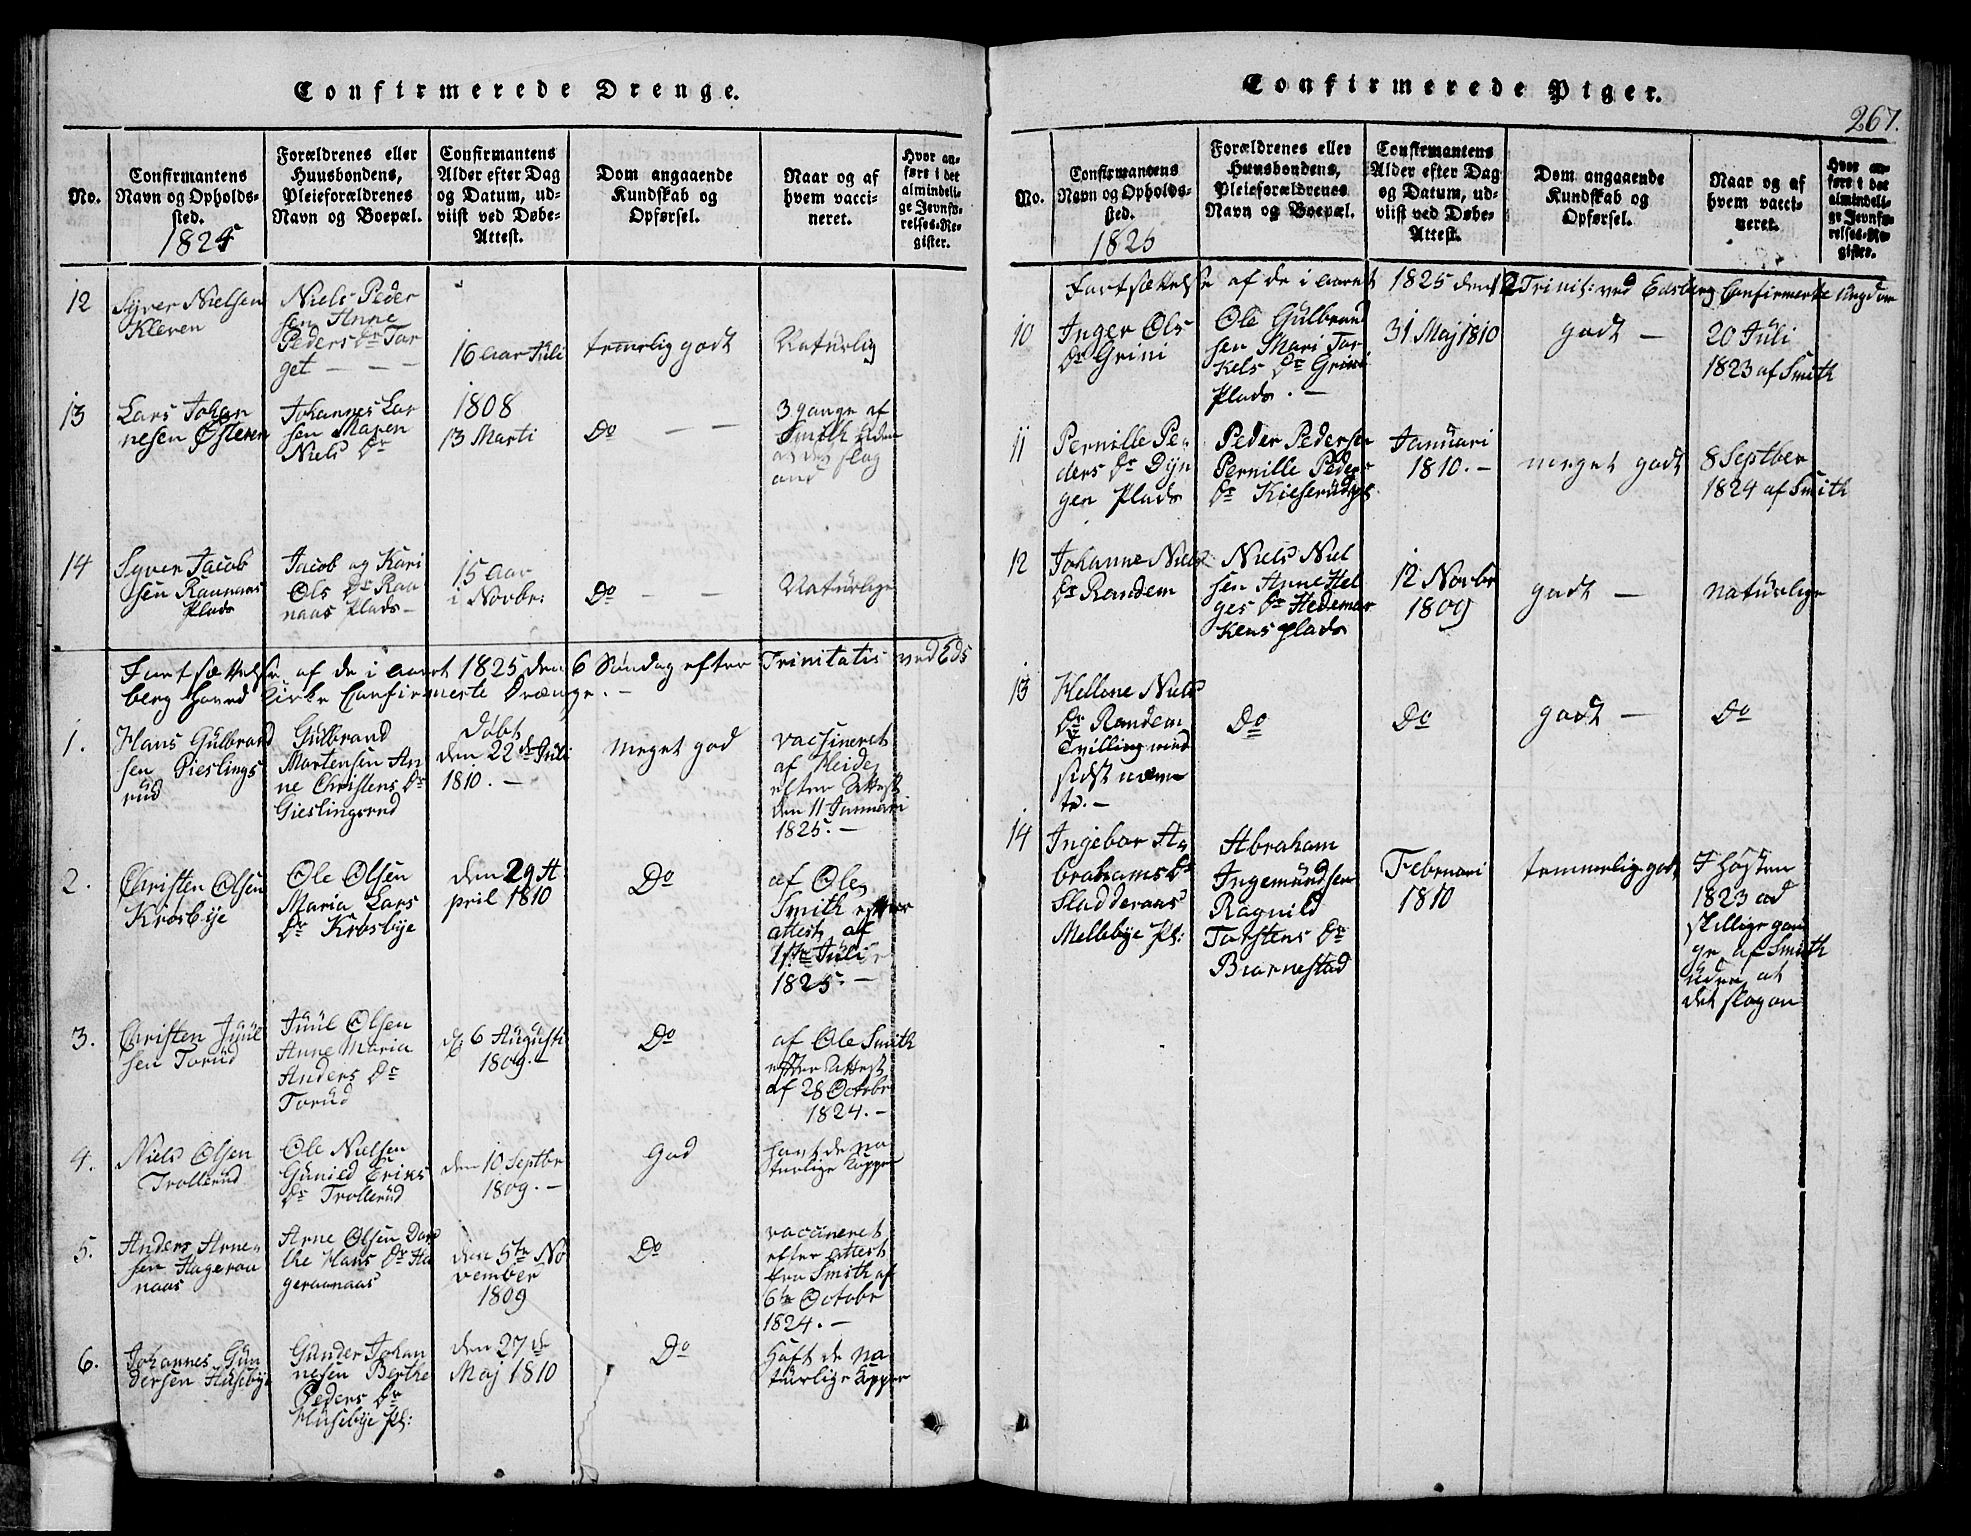 Confirmerede Drenge.
No.
Confirmantens
Navn og Opholds-
sted.
1825
Forældrenes eller
Huusbondens,
Pleieforældrenes
Navn og Boepæl.
Confirmantens
Alder efter Dag
og Datum, ud-
viist ved Døbe-
Attest.
Dom angaaende
Kundskab og
Opførsel.
Naar og af
hvem vacci-
neret.
Hvor an-
ført i det
almindeli-
ge Jevnfø-
relses-Re-
gister.
12
Syver Nielsen
Kleven
Niels Peder
sen Anne
Peders Dr Tor
get — — —
16 aar Juli
temelig godt
Naturlig
13
Lars Johan
nesen Østeren
Johannes Lar
sen Maren
Niels Dr
1808
13 Marti
Do — —
3 gange af
Smith uden
at det slog
and
14
Syver Jacob
sen Raanaas
Plads
Jacob og Kari
Ols Dr Raa
naas Plads -
15 aar
i Novbr:
Do — —
Naturlige
Fortsættelse af de i aaret 1825 den 6 Søndag efter Trinitatis ved Eds
berg Hoved Kirke Confirmerte Drænge. -
1.
Hans Gulbrand
sen Gieslings
rud
Gulbrand
Martensen An
ne Christens Dr
Gieslingsrud
Døbt
den 22de Juli
1810. -
Meget god
vaccineret
af Heide
efter Attest
den 11 Januari
1825. -
2.
Christen Olsen
Krosbye
Ole Olsen
Maria Lars
Dr Krosbye
den 29 A
pril 1810
Do
af Ole
Smith efter
attest af
1ste Juli
1825. -
3.
Christen Juul
sen Torud
Juul Olsen
Anne Maria
Anders Dr
Torud
d 6 Augusti
1809. -
Do
af Ole Smith
efter Attest
af 28 Octobr
1824. -
4.
Niels Olsen
Trollerud
Ole Nielsen
Gunild Eriks
Dr Trollerud
den 10 Septbr
1809. -
God
havt de na
turlige Kopper
5.
Anders Arne-
sen Hageraa
naas
Arne Olsen Dor
the Hans Dr Ha
geraanaas
den 5te No
vember
1809
Do
vaccineret
efter attest
fra Smith af
6te Octobr
1824. -
6.
Johannes Gun
dersen Husebye
Gunder Johan
nesen Berthe
Peders Dr
Husebye Pl:
den 27de
Maj 1810
Do
Haft de na
turlige Kopper
Confirmerede Piger.
267.
No.
Confirmantens
Navn og Opholds-
sted.
1825
Forældrenes eller
Huusbondens,
Pleieforældrenes
Navn og Boepæl.
Confirmantens
Alder efter Dag
og Datum, ud-
viist ved Døbe-
Attest.
Dom angaaende
Kundskab og
Opførsel.
Naar og af
hvem vacci-
neret.
Hvor an-
ført i det
almindeli-
ge Jevnfø-
relses-Re-
gister.
Fortsættelse af de i aaret 1825 den 12 Trinit: ved Edsberg Confirmerte Ungdom
10
Inger Ols
Dr Grini
Ole Gulbrand
sen Mari Tor
kels Dr Grini
Plads. -
31 Maj 1810
godt —
20 Juli
1823 af Smith
11
Pernille Pe-
ders Dr Dyn
gen Plads
Peder Peders
Pernille Peders
Dr Kieserudpl.
Januari
1810. -
meget godt
8 Septber
1824 af Smith
12
Johanne Niels
Dr Randem
Niels Niel
sen Anne Hel
ges Dr Hedemar
kens plads
12 Novbr
1809
godt —
naturlige
13
Hellene Niels
Dr Randem
Tvilling med
sidst nævn
te. -
Do
Do
godt —
Do
14
Ingebor A-
brahams Dr
Sladderaas
Mellebye Pl:
Abraham
Ingemundsen
Ragnild
Torstens Dr
Biørnestad
Februari
1810
temmerlig god
I Høsten
1823 ad
skillige gan
ge af Smith
uden at
det slog an